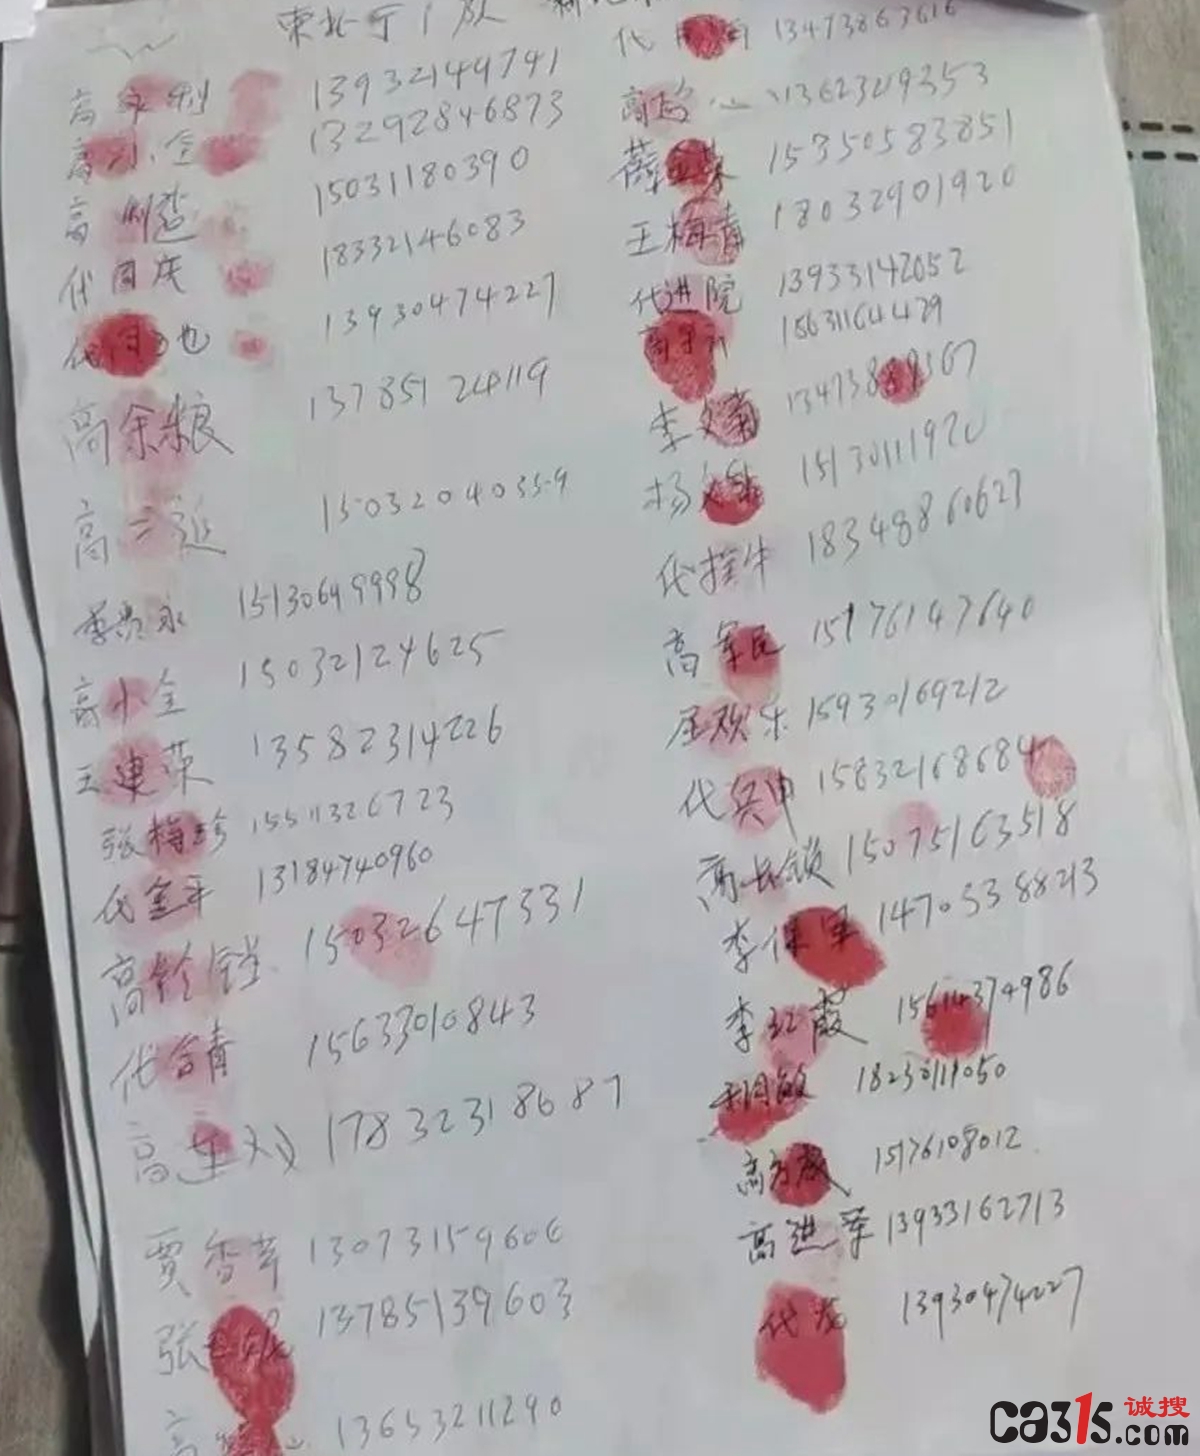 高永利 13932144741
高小全 13292846873
高利造 15031180390
代国庆 18332146083
代 13930474227
高余粮 13785124119
高三延 15032040359
李贵永 15130649998
高小全 15032124625
王建荣 13582314226
张梅珍 15511326723
代金平 13184740960
高铃锁 15032647331
代合青 15633010843
高 17832318687
贾香苹 13073159606
张 13785139603
高 13653211290
代 13473863616
高 13623209353
薛 15350583851
王梅青 18032901920
代进院 13933142052
高 15631164429
李文菊 13473
杨 15130111920
代拴牛 18348860627
高军民 15176147640
屈欢乐 15930169212
代兵申 15832168684
高长锁 15075163518
李保军 14705388213
李红霞 15614374986
敏 18230111050
高 15176108012
高进军 13933162713
代 13930474227
ca315诚搜
.com.cn